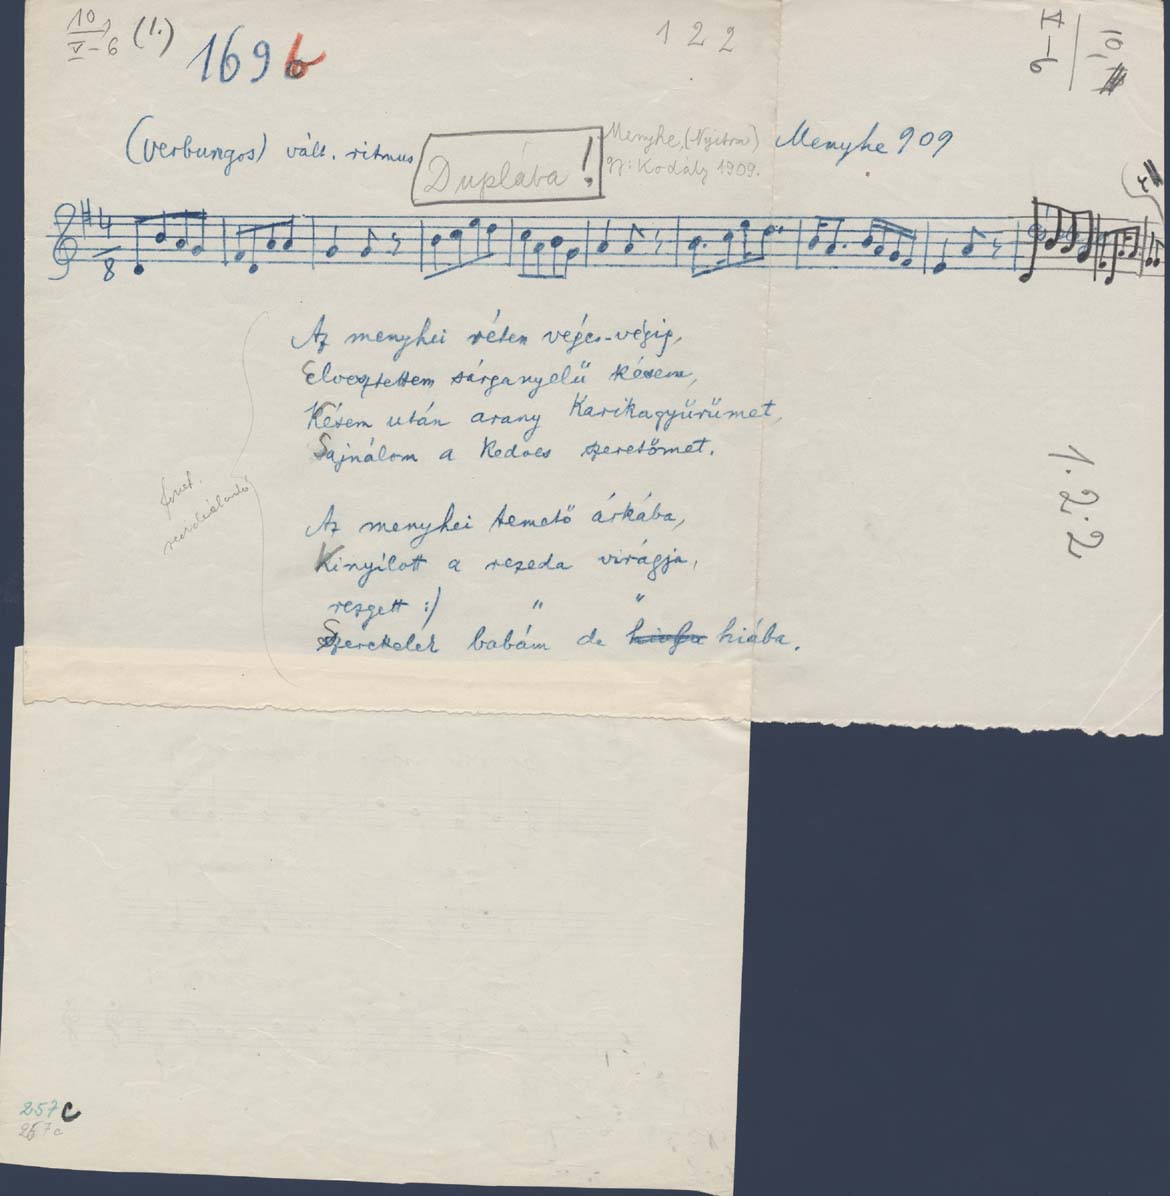 10
V-6 (1.)
169 b
1 2 2
10,
V-6
(verbungos) vált. ritmus
Duplába!
Menyhe, (Nyitra)
gy: Kodály 1909.
Menyhe 909
4
8
Az menyhei réten véges-végig,
Elvesztettem sárganyelű késem,
Késem után arany karikagyűrűmet,
Sajnálom a kedves szeretőmet.
Az menyhei temető árkába,
Kinyílott a rezeda virágja,
rezgett :) " "
Szeretelek babám de hiába.
1.2.2
257c
257c